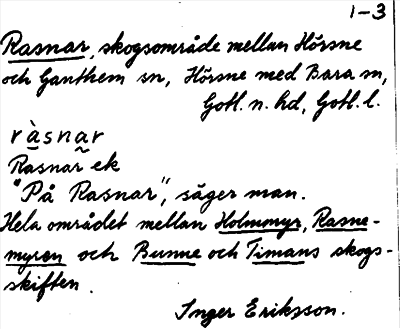 1-3
Rasnar, skogsområde mellan Hörsne
och Ganthem sn, Hörsne med Bara sn,
Gotl. n. hd, Gotl. l.
ràsnar
Rasnar ek
"På Rasnar", säger man.
Hela området mellan Holmmyr, Rasne-
myren och Bunne och Timans skogs-
skiften.
Inger Eriksson.